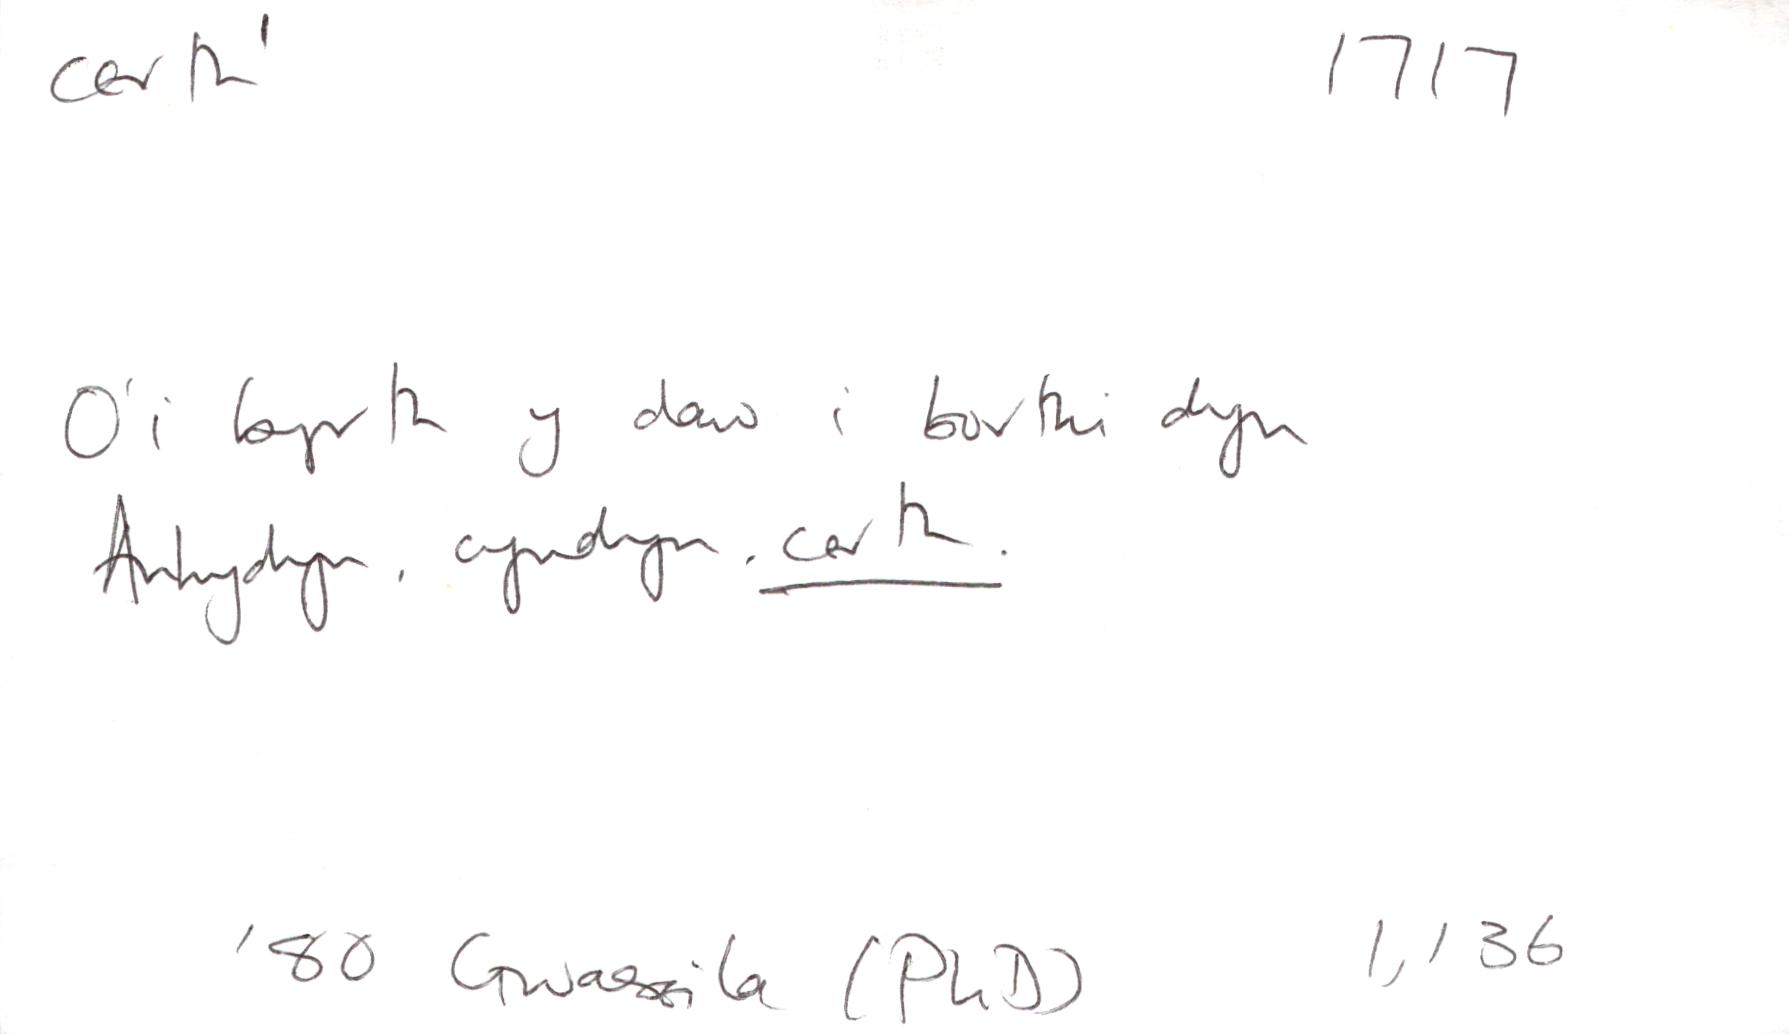 carth¹ 1717
O'i byrth y daw i borthi dyn
Anhydyn, cyndyn, carth.
'80 Gwassila (PhD) 1,136